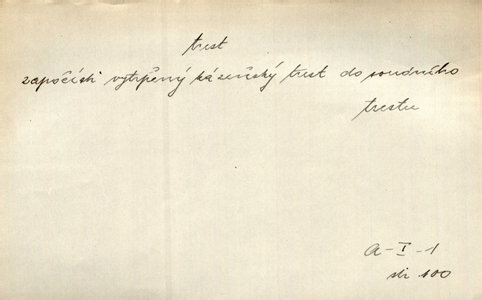 trest
započísti vytrpěný kázeňský trest do soudního
trestu
A-I-1
str 100